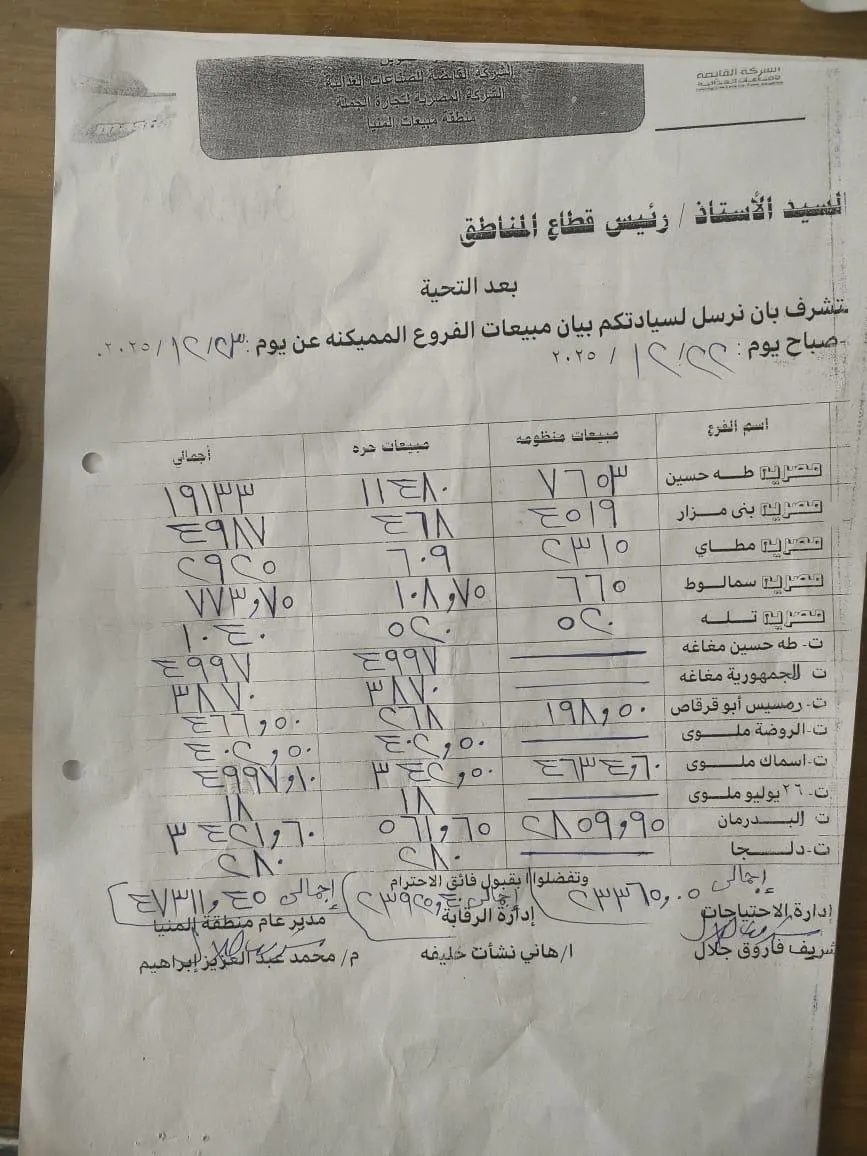 الشركة القابضة للصناعات الغذائية
الشركة القابضة للصناعات الغذائية
الشركة المصرية لتجارة الجملة
منطقة مبيعات المنيا
السيد الأستاذ / رئيس قطاع المناطق
بعد التحية
نتشرف بان نرسل لسيادتكم بيان مبيعات الفروع المميكنه عن يوم : ٢٣ / ١٢ / ٢٠٢٥ .
-صباح يوم : ٢٢ / ١٢ / ٢٠٢٥
اسم الفرع مبيعات منظومه مبيعات حره أجمالى
مصريه طـه حسين ٧٦٥٣ ١١٤٨٠ ١٩١٣٣
مصريه بنى مزار ٤٥١٩ ٤٦٨ ٤٩٨٧
مصريه مطـاي ٢٣١٥ ٦٠٩ ٢٩٢٥
مصريه سمالـوط ٦٦٥ ١٠٨,٧٥ ٧٧٣,٧٥
مصريه تـلـه ٥٢٠ ٥٢٠ ١٠٤٠
ت- طه حسين مغاغه ـــ ٤٩٩٧ ٤٩٩٧
ت الجمهورية مغاغه ـــ ٣٨٧٠ ٣٨٧٠
ت- رمسيس أبو قرقاص ١٩٨,٥٠ ٢٦٨ ٤٦٦,٥٠
ت-الروضة ملـوى ـــ ٤٠٢,٥٠ ٤٠٢,٥٠
ت-اسماك ملـوى ٤٦٣٤,٦٠ ٣٤٢,٥٠ ٤٩٩٧,١٠
ت- ٢٦ يوليو ملـوى ـــ ١٨ ١٨
ت البـدرمان ٢٨٥٩,٩٥ ٥٦١,٦٥ ٣٤٢١,٦٠
ت-دلـجا ـــ ٢٨٠ ٢٨٠
وتفضلوا بقبول فائق الاحترام
إجمالى ٢٣٣٦٥,٠٥ إجمالى ٢٣٩٢٥,٤٠ إجمالى ٤٧٣١١,٤٥
إدارة الاحتياجات إدارة الرقابة مدير عام منطقة المنيا
شريف فاروق جلال ا/هاني نشأت خليفه م/ محمد عبد العزيز إبراهيم